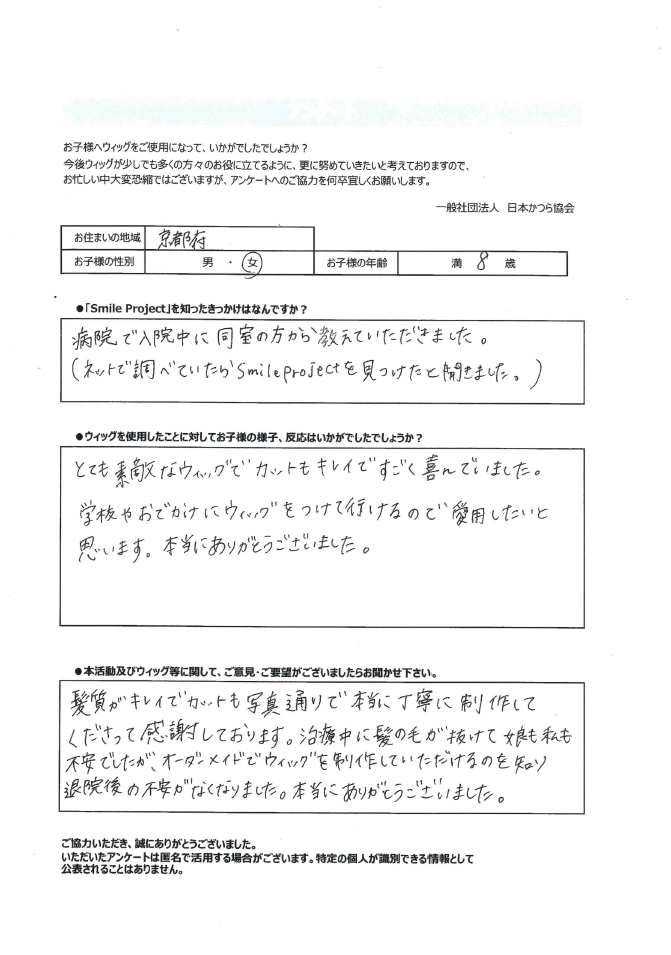 お子様へウィッグをご使用になって、いかがでしたでしょうか？
今後ウィッグが少しでも多くの方々のお役に立てるように、更に努めていきたいと考えておりますので、
お忙しい中大変恐縮ではございますが、アンケートへのご協力を何卒宜しくお願いします。
一般社団法人　日本かつら協会
お住まいの地域 京都府
お子様の性別 男 ・ 女 お子様の年齢 満 8 歳
●「Smile Project」を知ったきっかけはなんですか？
病院で入院中に同室の方から教えていただきました。
（ネットで調べていたらSmileprojectを見つけたと聞きました。）
●ウィッグを使用したことに対してお子様の様子、反応はいかがでしたでしょうか？
とても素敵なウィッグでカットもキレイですごく喜んでいました。
学校やおでかけにウィッグをつけて行けるので愛用したいと
思います。本当にありがとうございました。
●本活動及びウィッグ等に関して、ご意見・ご要望がございましたらお聞かせ下さい。
髪質がキレイでカットも写真通りで本当に丁寧に制作して
くださって感謝しております。治療中に髪の毛が抜けて娘も私も
不安でしたが、オーダーメイドでウィッグを制作していただけるのを知り
退院後の不安がなくなりました。本当にありがとうございました。
ご協力いただき、誠にありがとうございました。
いただいたアンケートは匿名で活用する場合がございます。特定の個人が識別できる情報として
公表されることはありません。